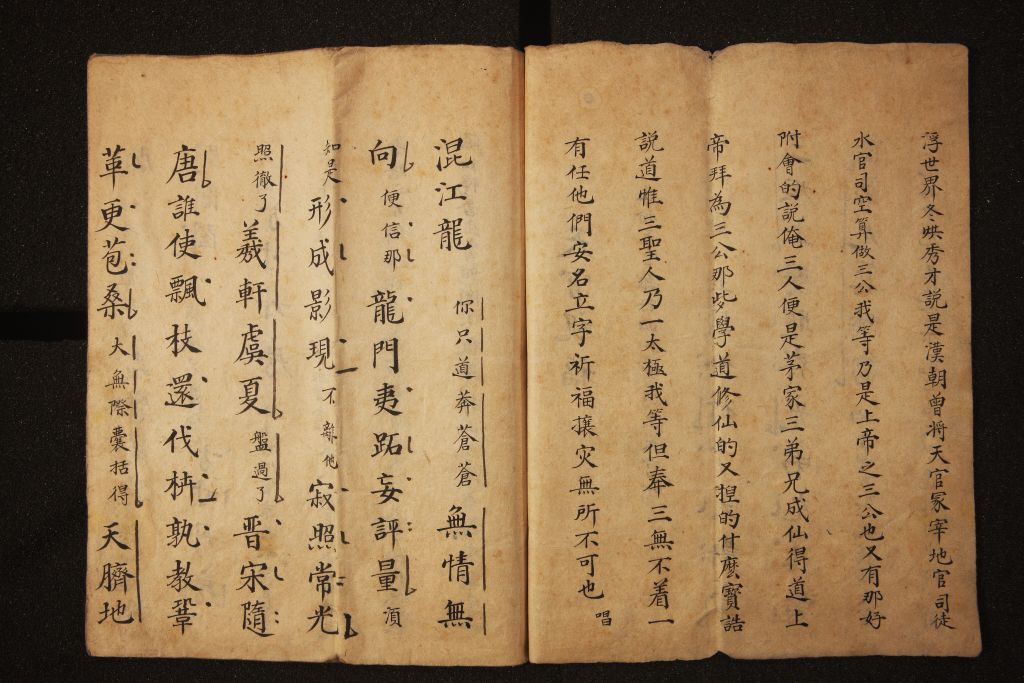 浮世界冬烘秀才説是漢朝曾將天官冢宰地官司徒
水官司空算做三公我等乃是上帝之三公也又有那好
附會的説俺三人便是茅家三弟兄成仙得道上
帝拜為三公那些學道修仙的又捏的什麽寶誥
説道惟三聖人乃一太極我等但奉三無不着一
有任他們安名立字祈福攘灾無所不可也 唱
混江龍 你只道莽蒼蒼無情無
向便信那龍門夷跖妄評量須
如是形成影現不離他寂照常光
照徹了羲軒虞夏盤過了晋宋隨
唐誰使飄枝還伐枿孰教鞏
革更苞桑大無際囊括得天臍地